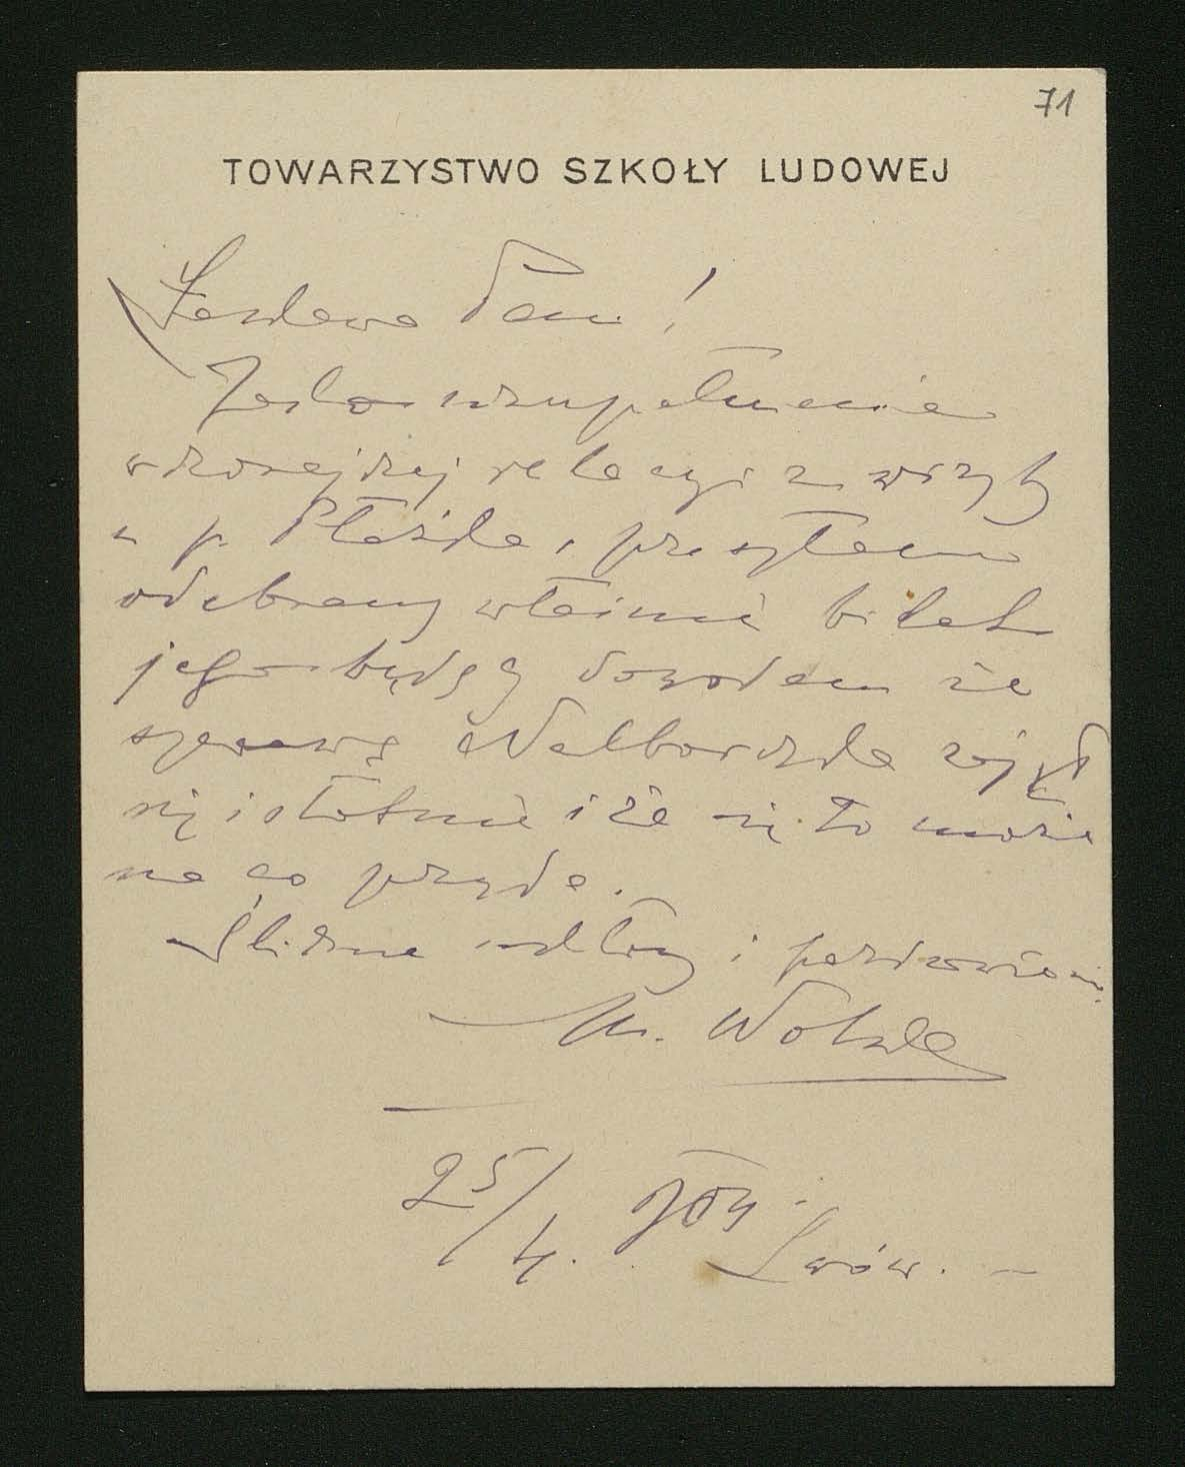 71
TOWARZYSTWO SZKOŁY LUDOWEJ
Łaskawa Pani!
Jako uzupełnienie
wczorajszej relacyi z wizyty
u p. Płażka, przesyłam
odebrany właśnie bilet
jego będący dowodem że
sprawą zajął
się istotnie i że się to może
na co przyda.
Śliczne ukłony i pozdrowienia
M. Wolska
25/4. 904. Lwów. –